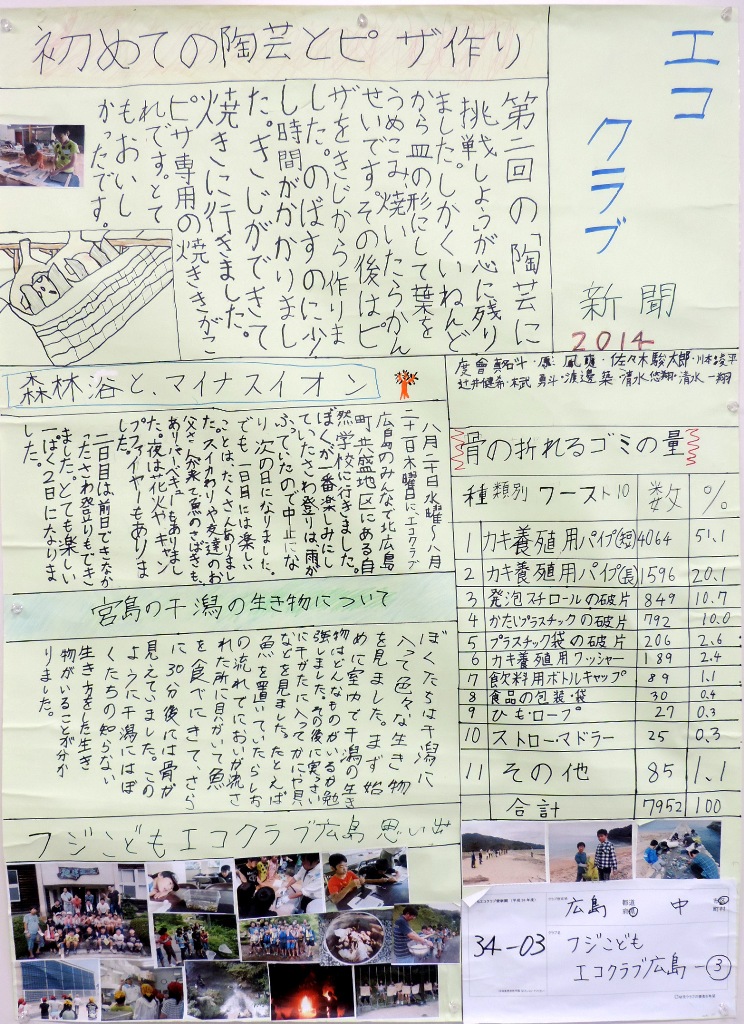 エコ
クラブ
新聞
2014
初めての陶芸とピザ作り
第二回の「陶芸に
挑戦しよう」が心に残り
ました。しかくいねんど
から皿の形にして葉を
うめこみ焼いたらかん
せいです。その後はピ
ザをきじから作りま
した。のばすのに少
し時間がかかりまし
た。きじができて
焼きに行きました。
ピザ専用の焼ききがこ
れです。とて
もおいし
かったです。
佐々木駿太郎・川本峻平
辻井健希・本武勇斗・渡邊築・清水悠翔・清水一翔
森林浴と、マイナスイオン
八月二十日水曜〜八月
二十一日木曜日に、エコクラブ
広島のみんなで北広島
町芸盛地区にある自
然学校に行きました。
ぼくが一番楽しみにし
ていたさわ登りは、雨が
ふっていたので中止にな
り次の日になりました。
でも一日目には楽しい
ことはたくさんありまし
た。スイカわりや友達のお
父さんが来て魚のさばきも、
ありバーベキューもありまし
た。夜は花火やキャン
プファイヤーもありま
した。
二日目は、前日できなか
ったさわ登りもでき
ました。とても楽しい
一ぱく2日になりま
した。
宮島の干潟の生き物について
ぼくたちは干潟に
入って色々な生き物
を見ました。まず始
めに室内で干潟の生き
物はどんなものがいるか勉
強しました。その後に実さい
に干がたに入ってかにや貝
などを見ました。たとえば
魚を置いていたらしお
の流れでにおいが流さ
れた所に貝がいて魚
を食べにきて、さら
に30分後には骨が
見えていました。この
ように干潟にはぼ
くたちの知らない
生き方をした生き
物がいることが分か
りました。
骨の折れるゴミの量
種類別ワースト10 数 %
1 カキ養殖用パイプ(短) 4064 51.1
2 カキ養殖用パイプ(長) 1596 20.1
3 発泡スチロールの破片 849 10.7
4 かたいプラスチックの破片 792 10.0
5 プラスチック袋の破片 206 2.6
6 カキ養殖用ワッシャー 189 2.4
7 飲料用ボトルキャップ 89 1.1
8 食品の包装・袋 30 0.4
9 ひも・ロープ 27 0.3
10 ストロー・マドラー 25 0.3
11 その他 85 1.1
合計 7952 100
フジこどもエコクラブ広島思い出
広島 都道府県 中 市区町村
34-03
フジこども
エコクラブ広島-③